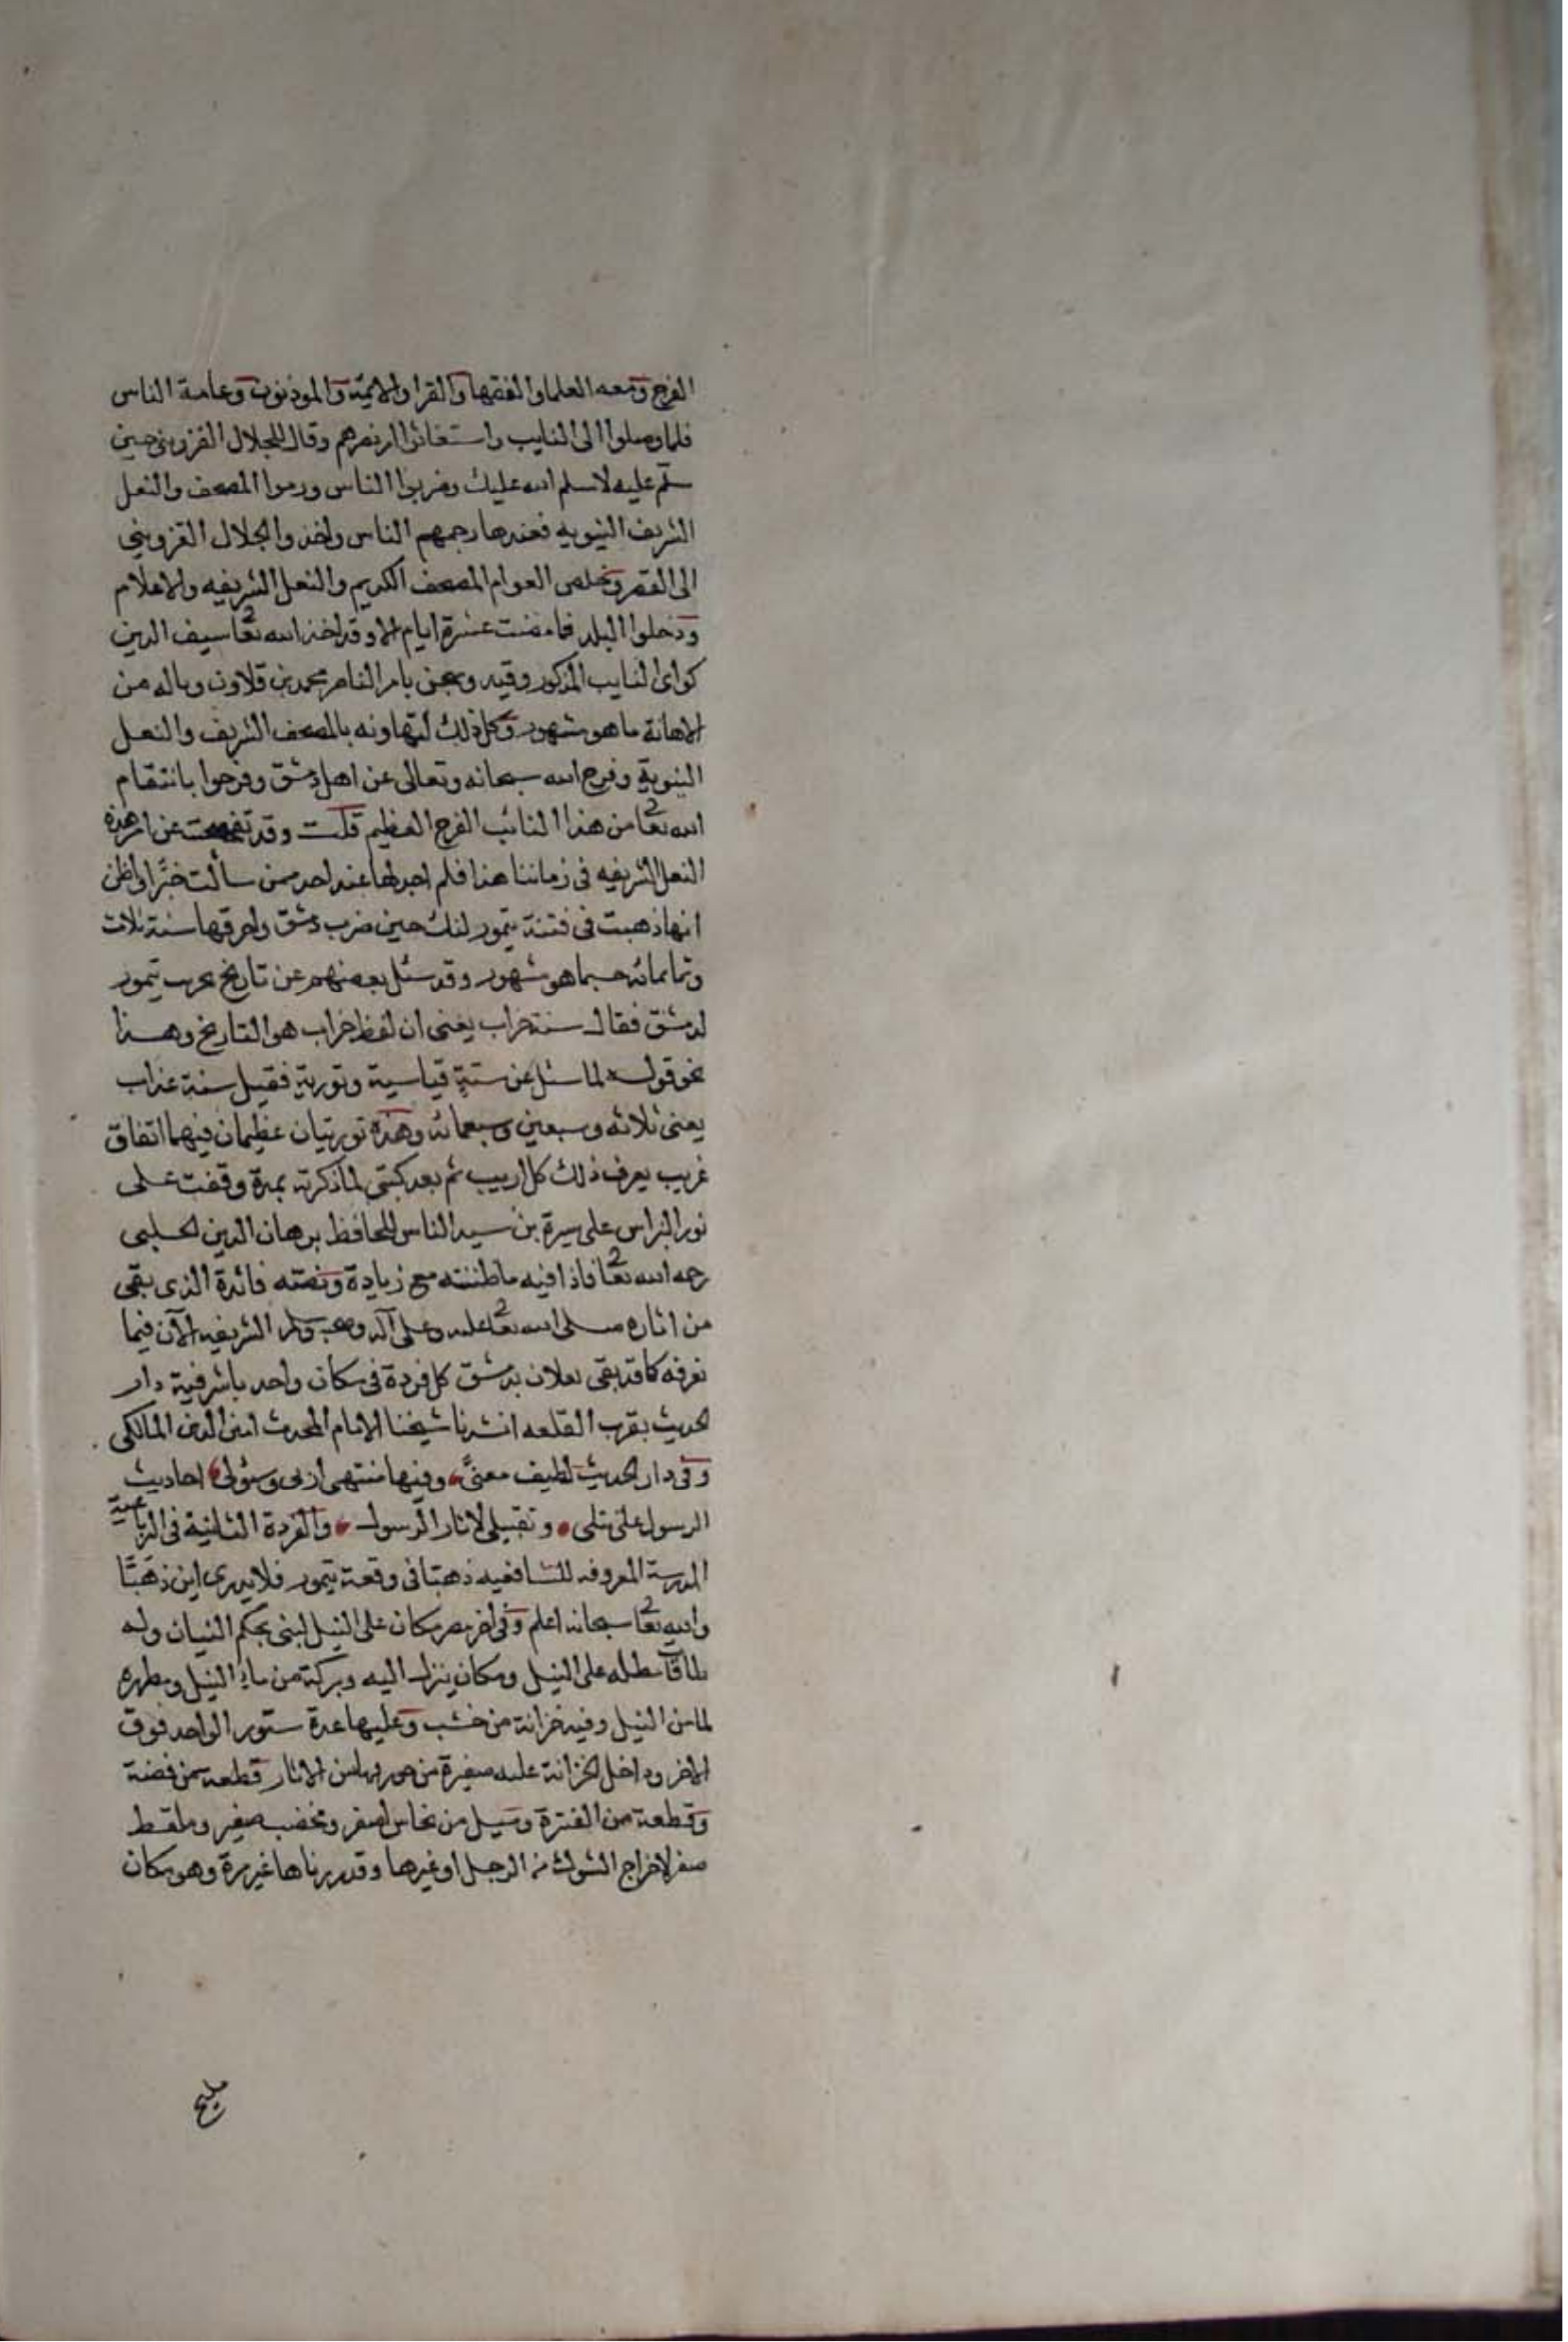 الفرج ومعه العلما والفقها والقرا والايمة والموذنون وعامة الناس
فلما وصلوا الى النايب واستغاثوا ازبرهم وقال للجلال القزوينى حين
سلم عليه لا سلم الله عليك وضربوا الناس ورموا المصحف والنعل
الشريف النبويه فعندها رجمهم الناس واخذوا الجلال القزوينى
الى القصر وخلص العوام المصحف الكريم والنعل الشريفه والاعلام
ودخلوا البلد فما مضت عشرة ايام الا وقد اخذ الله تعا سيف الدين
كراى النايب المذكور وقيد وسجن بامر الناصر محمد بن قلاون وناله من
الاهانة ما هو مشهور وكل ذلك لتهاونه بالمصحف الشريف والنعل
النبوية وفرج الله سبحانه وتعالى عن اهل دمشق وفرحوا بانتقام
الله تعا من هذا النائب الفرح العظيم قلت وقد تفحصت عن امر هذه
النعل الشريفه فى زماننا هذا فلم اجد لها عند احد ممن سألت خبرًا واظن
انها ذهبت فى فتنة تيمور لنك حين ضرب دمشق واحرقها سنة ثلاث
وثمانمائه حسبما هو مشهور وقد سئل بعضهم عن تاريخ تخريب تيمور
لدمشق فقال سنة خراب يعنى ان لفظ خراب هو التاريخ وهذا
نحو قوله لما سئل عن ستة قياسية وتورية فقيل سنة عذاب
يعنى ثلاثه وسبعين وسبعمائه وهذه توريتان عظيمان فيهما اتفاق
غريب يعرف ذلك كل اريب ثم بعد كتبى لما ذكرته بمدة وقفت على
نور النبراس على سيرة بن سيد الناس للحافظ برهان الدين الحلبى
رحمه الله تعا فاذا فيه ما ظننته مع زيادة ونصته فائدة الذى بقى
من اثاره صلى الله تعا عليه وعلى آله وصحبه وسلم الشريفه الآن فيما
نعرفه كا قد بقى نعلان بدمشق كل فردة فى مكان واحد باشرفية دار
الحديث بقرب القلعه انشدنا شيخنا الامام المحدث امين الدين المالكى
وفى دار الحديث لطيف معنًى وفيها منتهى اربى وسئولى احاديث
الرسول على تتلى وتقبيلى لاثار الرسول والفردة الثانية فى الدماغية
المدرسة المعروفه للشافعيه ذهبتا فى وقعة تيمور فلا يدرى اين ذهبتا
والله تعا سبحانه اعلم وفى اخر مصر مكان على النيل لبنى بحكم البنيان وله
طاقات مطله على النيل ومكان ينزل اليه وبركة من ماء النيل ومطهره
لماس النيل وفيه خزانة من خشب وعليها عدة ستور الواحد فوق
الاخر وداخل الخزانة علبه صغيرة من الاثار قطعة من فضة
وقطعة من العنزة وميل من نحاس اصفر ومخضب صغير وملقط
صغر لاخراج الشوك من الرجل او غيرها وقد زرناها غير مرة وهو مكان
مليح